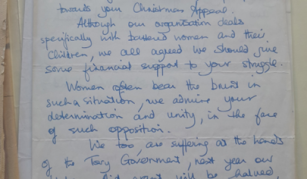 towards your Christmas Appeal.
Although our organisation deals
specifically with battered women and their
children, we all agreed we should give
some financial support to your struggle.
Women often bear the brunt in
such a situation, we admire your
determination and unity, in the face
of such opposition.
We too, are suffering at the hands
of the Tory Government, next year our
will be halved